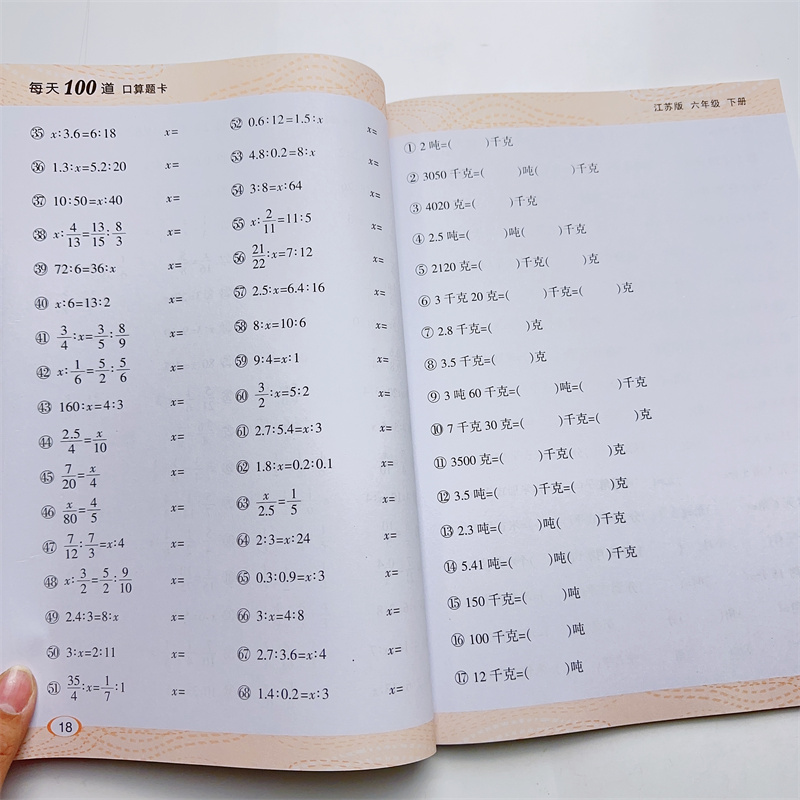 每天100道 口算题卡
㉟ x∶3.6=6∶18 x=
㊱ 1.3∶x=5.2∶20 x=
㊲ 10∶50=x∶40 x=
㊳ x∶4/13=13/15∶8/3 x=
㊴ 72∶6=36∶x x=
㊵ x∶6=13∶2 x=
㊶ 3/4∶x=3/5∶8/9 x=
㊷ x∶1/6=5/2∶5/6 x=
㊸ 160∶x=4∶3 x=
㊹ 2.5/4=x/10 x=
㊺ 7/20=x/4 x=
㊻ x/80=4/5 x=
㊼ 7/12∶7/3=x∶4 x=
㊽ x∶3/2=5/2∶9/10 x=
㊾ 2.4∶3=8∶x x=
㊿ 3∶x=2∶11 x=
51 35/4∶x=1/7∶1 x=
52 0.6∶12=1.5∶x x=
53 4.8∶0.2=8∶x x=
54 3∶8=x∶64 x=
55 x∶2/11=11∶5 x=
56 21/22∶x=7∶12 x=
57 2.5∶x=6.4∶16 x=
58 8∶x=10∶6 x=
59 9∶4=x∶1 x=
60 3/2∶x=5∶2 x=
61 2.7∶5.4=x∶3 x=
62 1.8∶x=0.2∶0.1 x=
63 x/2.5=1/5 x=
64 2∶3=x∶24 x=
65 0.3∶0.9=x∶3 x=
66 3∶x=4∶8 x=
67 2.7∶3.6=x∶4 x=
68 1.4∶0.2=x∶3 x=
18
江苏版 六年级 下册
① 2吨=( )千克
② 3050千克=( )吨( )千克
③ 4020克=( )千克
④ 2.5吨=( )吨( )千克
⑤ 2120克=( )千克( )克
⑥ 3千克20克=( )千克=( )克
⑦ 2.8千克=( )克
⑧ 3.5千克=( )克
⑨ 3吨60千克=( )吨=( )千克
⑩ 7千克30克=( )千克=( )克
⑪ 3500克=( )千克( )克
⑫ 3.5吨=( )千克=( )克
⑬ 2.3吨=( )吨( )千克
⑭ 5.41吨=( )吨( )千克
⑮ 150千克=( )吨
⑯ 100千克=( )吨
⑰ 12千克=( )吨